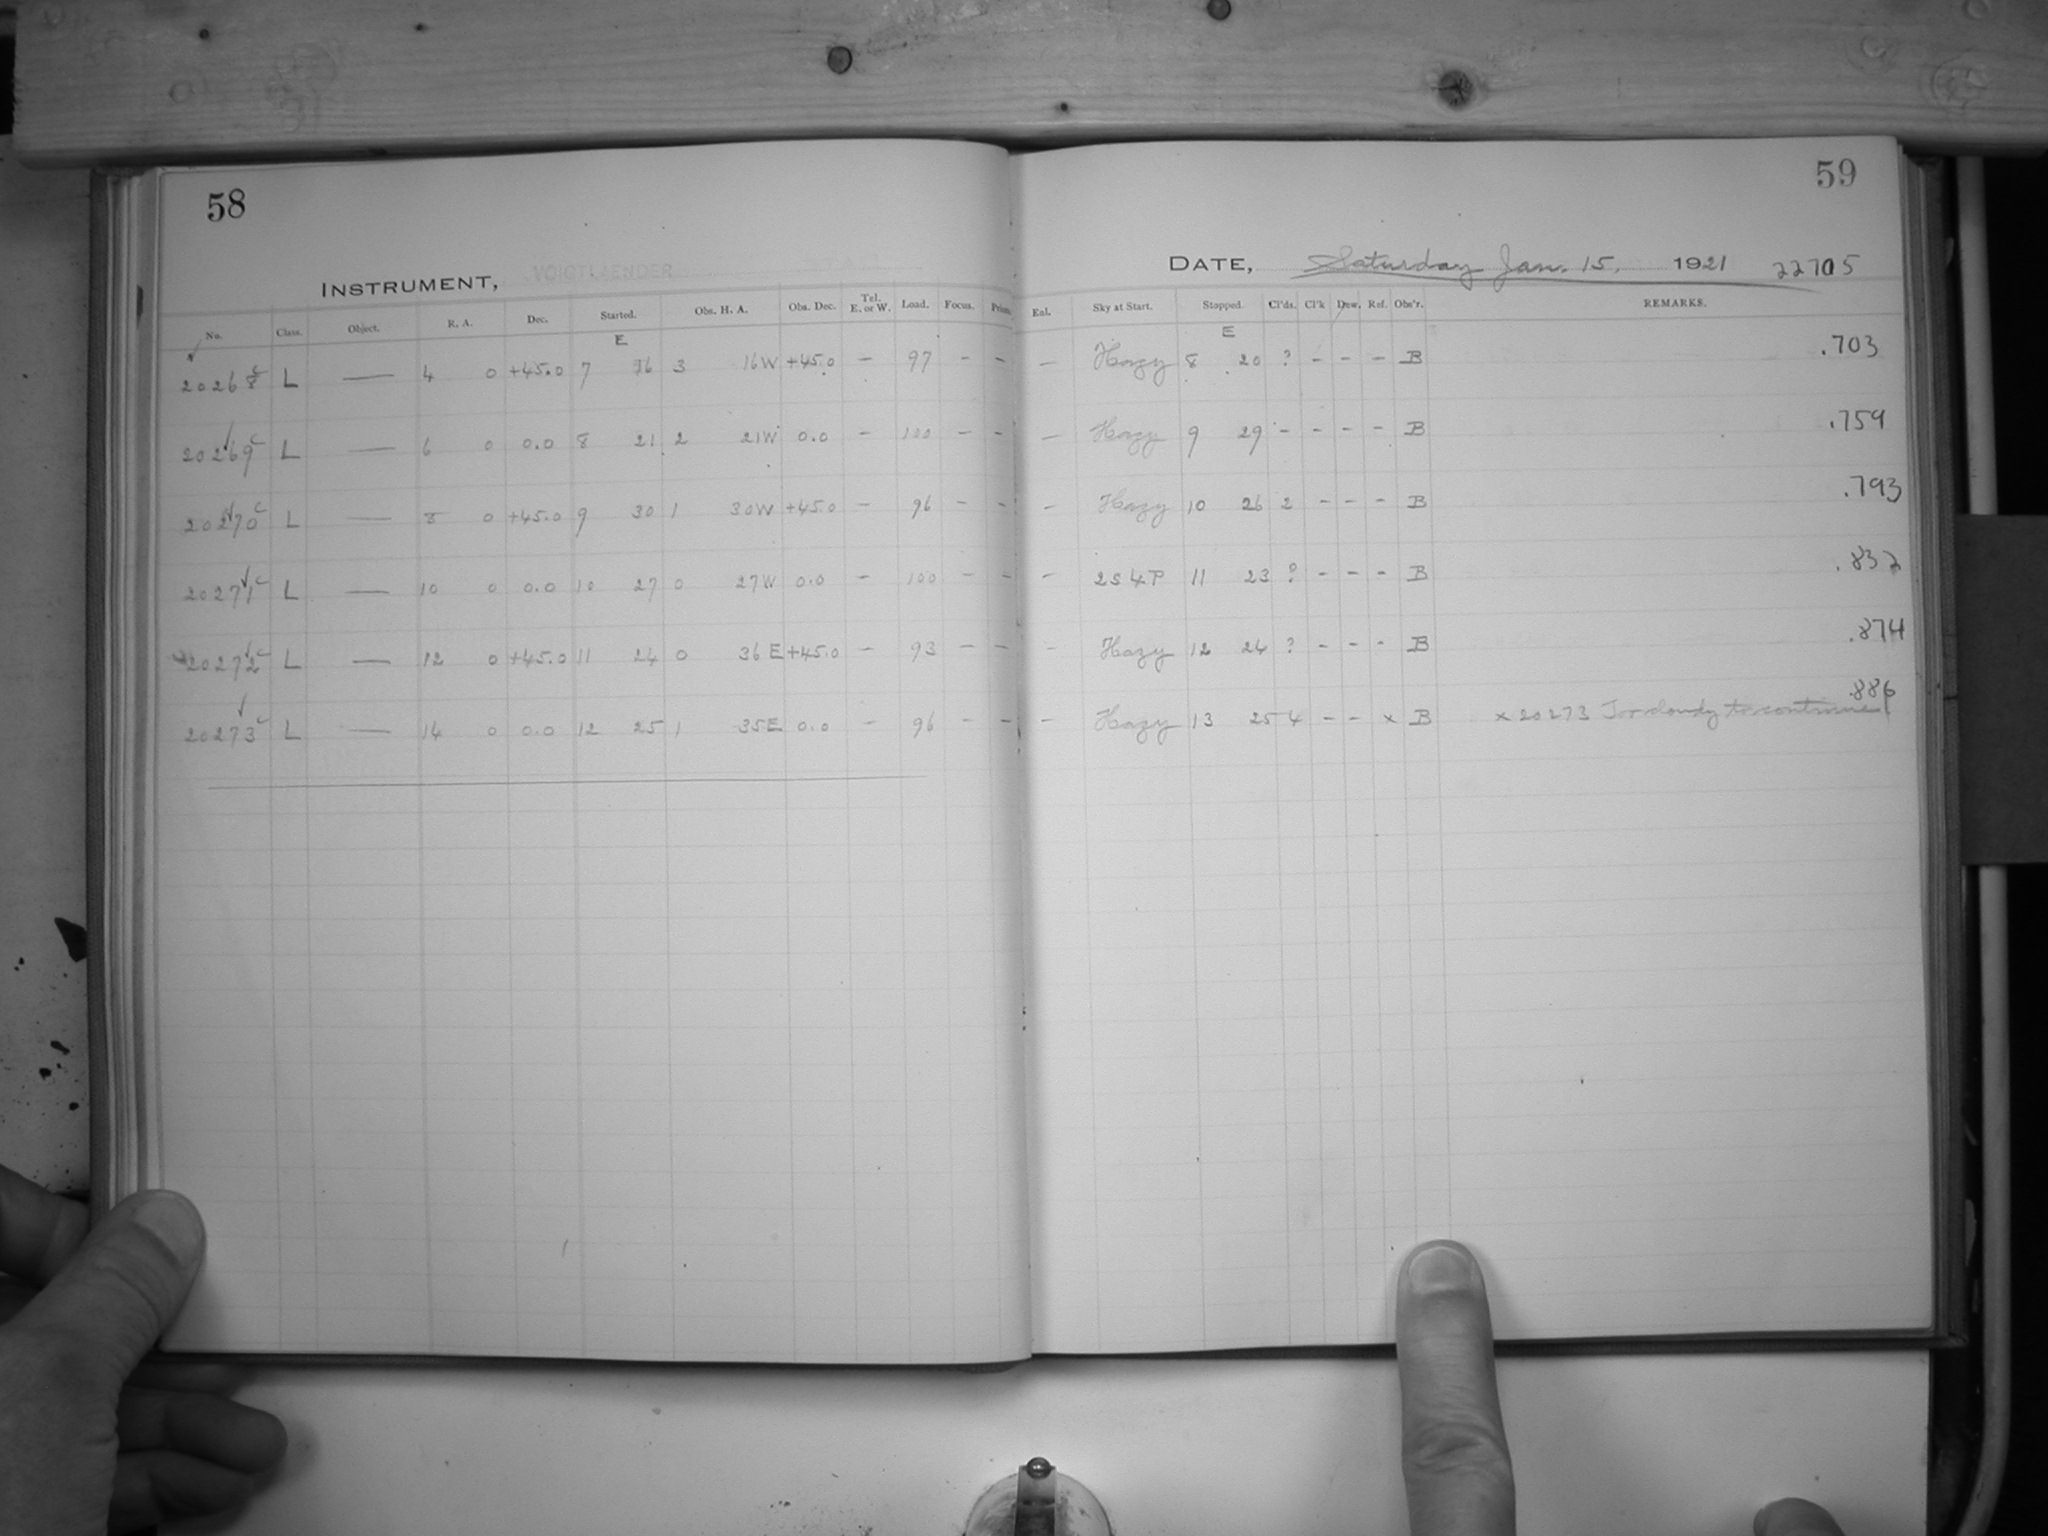 58
59
INSTRUMENT, VOIGTLAENDER
DATE, Saturday Jan. 15, 1921 22705
No. Class. Object. R. A. Dec. Started. Obs. H. A. Obs. Dec. Tel. E. or W. Load. Focus. Prism. Eal. Sky at Start. Stopped. Cl'ds. Cl'k Dew. Ref. Obs'r. REMARKS.
E E
20268 c L — 4 0 +45.0 7 16 3 16W +45.0 — 97 – – – Hazy 8 20 ? – – – B .703
20269 c L — 6 0 0.0 8 21 2 21W 0.0 — 100 – – – Hazy 9 29 – – – – B .759
20270 c L — 8 0 +45.0 9 30 1 30W +45.0 — 96 – – – Hazy 10 26 2 – – – B .793
20271 c L — 10 0 0.0 10 27 0 27W 0.0 – 100 – – – 2S4P 11 23 ? – – – B .832
20272 c L — 12 0 +45.0 11 24 0 36E +45.0 – 93 – – – Hazy 12 24 ? – – – B .874
20273 c L — 14 0 0.0 12 25 1 35E 0.0 – 96 – – – Hazy 13 25 4 – – x B x 20273 Too cloudy to continue .886